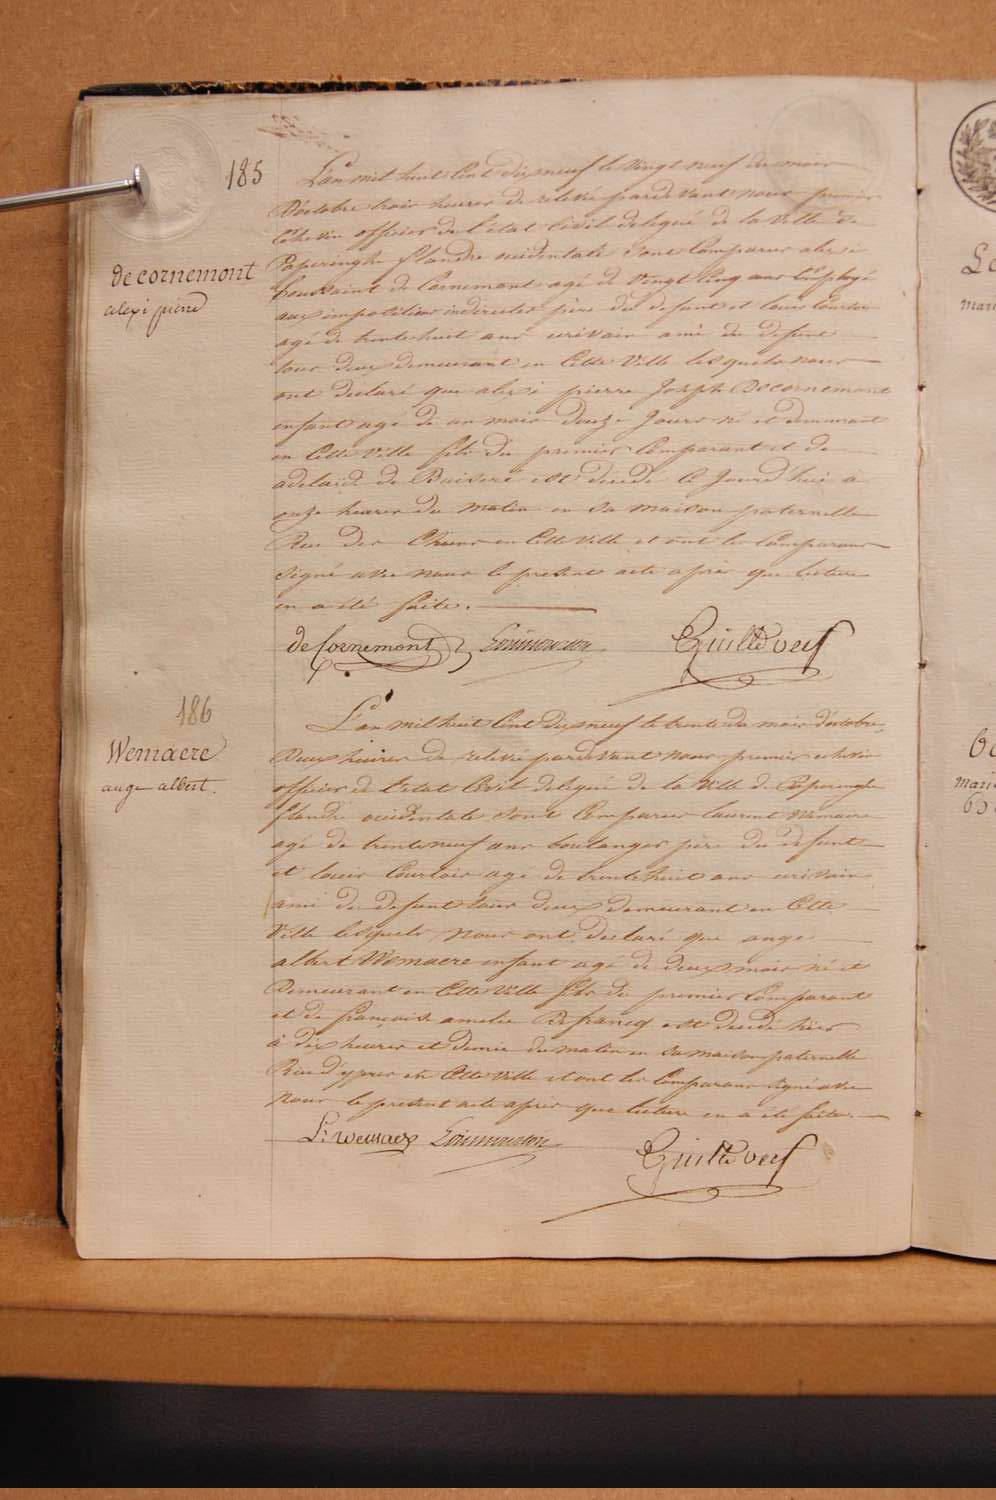 185
de cornemont
alexi pierre
L'an mil huit Cent dix neuf le vingt neuf du mois
D'octobre trois heures de relevée pardevant nous premier
Echevin officier de l'état Civil delegué de la Ville de
Poperinghe flandre occidentale sont Comparus alexi
toussaint de Cornemont agé de vingt Cinq ans Employé
aux impositions indirectes père du defunt et louis Courtois
agé de trente huit ans ecrivain ami du defunt
tous deux demeurant en Cette Ville lesquels nous
ont declaré que alexi pierre Joseph Decornemont
enfant agé de un mois douze Jours né et demeurant
en Cette Ville fils du premier Comparant et de
adelaide de Baiseré est decedé ce Jourd'hui a
onze heures du matin en sa maison paternelle
Rue des Chiens en Cette Ville et ont les Comparans
signé avec nous le present acte après que lecture
en a été faite.
de Cornemont
186
Wemaere
ange albert.
L'an mil huit Cent dix neuf le trente du mois d'octobre,
Deux heures de relevée pardevant nous premier echevin
officier de l'etat Civil delegué de la Ville de Poperinghe
flandre occidentale sont Comparus laurent Wemaere
agé de trente neuf ans boulanger père du defunt
et louis Courtois agé de trente huit ans ecrivain
ami du defunt tous deux demeurant en Cette
Ville lesquels nous ont declaré que ange
albert Wemaere enfant agé de deux mois né et
Demeurant en Cette Ville fils du premier Comparant
et de françoise amelie Defrancq est decedé hier
à dix heures et demie du matin en sa maison paternelle
Rue d'ypres en Cette Ville et ont les Comparans signé avec
nous le present acte après que lecture en a été faite.
L: wemaere